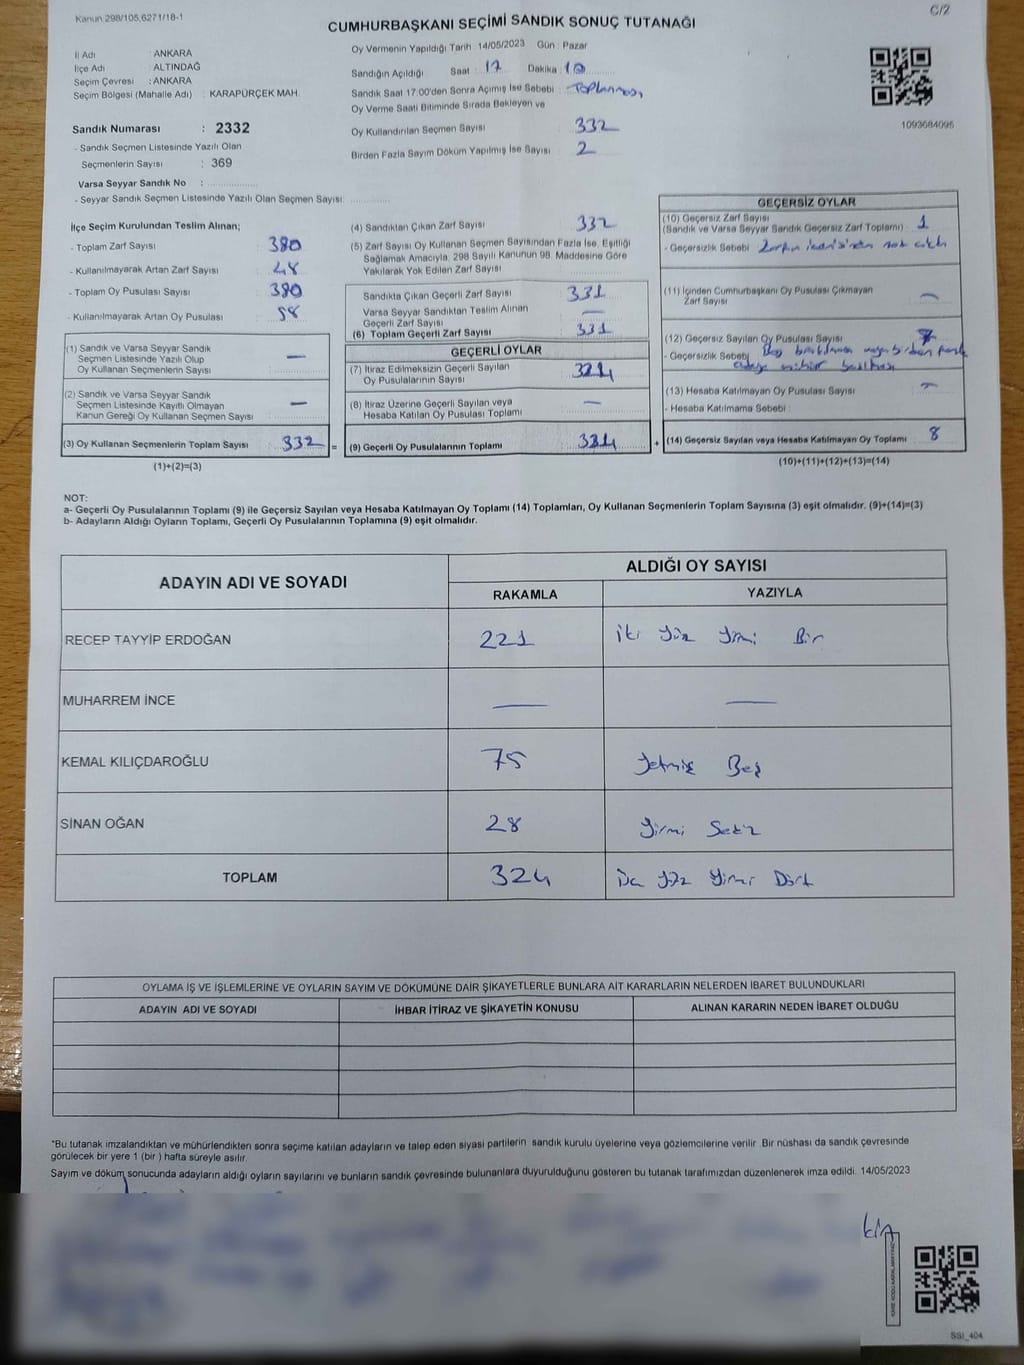 Kanun 298/105,6271/18-1
C/2
CUMHURBAŞKANI SEÇİMİ SANDIK SONUÇ TUTANAĞI
İl Adı : ANKARA
İlçe Adı : ALTINDAĞ
Seçim Çevresi : ANKARA
Seçim Bölgesi (Mahalle Adı) : KARAPÜRÇEK MAH.
Sandık Numarası : 2332
- Sandık Seçmen Listesinde Yazılı Olan
Seçmenlerin Sayısı : 369
Varsa Seyyar Sandık No :
- Seyyar Sandık Seçmen Listesinde Yazılı Olan Seçmen Sayısı:
Oy Vermenin Yapıldığı Tarih : 14/05/2023 Gün : Pazar
Sandığın Açıldığı Saat : 17 Dakika : 10
Sandık Saat 17:00'den Sonra Açımış İse Sebebi : Toplanması
Oy Verme Saati Bitiminde Sırada Bekleyen ve
Oy Kullandırılan Seçmen Sayısı 332
Birden Fazla Sayım Döküm Yapılmış İse Sayısı 2
1093684095
İlçe Seçim Kurulundan Teslim Alınan;
- Toplam Zarf Sayısı 380
- Kullanılmayarak Artan Zarf Sayısı 48
- Toplam Oy Pusulası Sayısı 380
- Kullanılmayarak Artan Oy Pusulası
(1) Sandık ve Varsa Seyyar Sandık
Seçmen Listesinde Yazılı Olup
Oy Kullanan Seçmenlerin Sayısı —
(2) Sandık ve Varsa Seyyar Sandık
Seçmen Listesinde Kayıtlı Olmayan
Kanun Gereği Oy Kullanan Seçmen Sayısı —
(3) Oy Kullanan Seçmenlerin Toplam Sayısı 332 =
(1)+(2)=(3)
(4) Sandıktan Çıkan Zarf Sayısı 332
(5) Zarf Sayısı Oy Kullanan Seçmen Sayısından Fazla İse, Eşitliği
Sağlamak Amacıyla, 298 Sayılı Kanunun 98. Maddesine Göre
Yakılarak Yok Edilen Zarf Sayısı
Sandıkta Çıkan Geçerli Zarf Sayısı 331
Varsa Seyyar Sandıktan Teslim Alınan
Geçerli Zarf Sayısı —
(6) Toplam Geçerli Zarf Sayısı 331
GEÇERLİ OYLAR
(7) İtiraz Edilmeksizin Geçerli Sayılan
Oy Pusulalarının Sayısı 324
(8) İtiraz Üzerine Geçerli Sayılan veya
Hesaba Katılan Oy Pusulası Toplamı —
(9) Geçerli Oy Pusulalarının Toplamı 324 +
GEÇERSİZ OYLAR
(10) Geçersiz Zarf Sayısı
(Sandık ve Varsa Seyyar Sandık Geçersiz Zarf Toplamı) 1
- Geçersizlik Sebebi : Zarfın içerisinden not çıktı
(11) İçinden Cumhurbaşkanı Oy Pusulası Çıkmayan
Zarf Sayısı —
(12) Geçersiz Sayılan Oy Pusulası Sayısı 7
- Geçersizlik Sebebi : Boş bırakılması veya birden fazla
adaya mühür basılması
(13) Hesaba Katılmayan Oy Pusulası Sayısı —
- Hesaba Katılmama Sebebi :
(14) Geçersiz Sayılan veya Hesaba Katılmayan Oy Toplamı 8
(10)+(11)+(12)+(13)=(14)
NOT:
a- Geçerli Oy Pusulalarının Toplamı (9) ile Geçersiz Sayılan veya Hesaba Katılmayan Oy Toplamı (14) Toplamları, Oy Kullanan Seçmenlerin Toplam Sayısına (3) eşit olmalıdır. (9)+(14)=(3)
b- Adayların Aldığı Oyların Toplamı, Geçerli Oy Pusulalarının Toplamına (9) eşit olmalıdır.
ADAYIN ADI VE SOYADI
ALDIĞI OY SAYISI
RAKAMLA YAZIYLA
RECEP TAYYİP ERDOĞAN 221 İki Yüz Yirmi Bir
MUHARREM İNCE — —
KEMAL KILIÇDAROĞLU 75 Yetmiş Beş
SİNAN OĞAN 28 Yirmi Sekiz
TOPLAM 324 Üç Yüz Yirmi Dört
OYLAMA İŞ VE İŞLEMLERİNE VE OYLARIN SAYIM VE DÖKÜMÜNE DAİR ŞİKAYETLERLE BUNLARA AİT KARARLARIN NELERDEN İBARET BULUNDUKLARI
ADAYIN ADI VE SOYADI
İHBAR İTİRAZ VE ŞİKAYETİN KONUSU
ALINAN KARARIN NEDEN İBARET OLDUĞU
*Bu tutanak imzalandıktan ve mühürlendikten sonra seçime katılan adayların ve talep eden siyasi partilerin sandık kurulu üyelerine veya gözlemcilerine verilir. Bir nüshası da sandık çevresinde
görülecek bir yere 1 (bir ) hafta süreyle asılır.
Sayım ve döküm sonucunda adayların aldığı oyların sayılarını ve bunların sandık çevresinde bulunanlara duyurulduğunu gösteren bu tutanak tarafımızdan düzenlenerek imza edildi. 14/05/2023
SSI_404